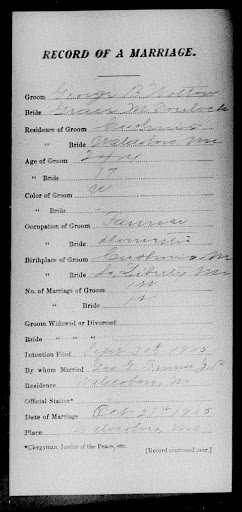 RECORD OF A MARRIAGE.
Groom George B. Walton
Bride Grace M.
Residence of Groom Cushing
" Bride Waldoboro Me
Age of Groom 24
" Bride 17
Color of Groom W
" Bride
Occupation of Groom Farmer
" Bride domestic
Birthplace of Groom Cushing Me
" Bride So. Liberty Me
No. of Marriage of Groom 1st
" Bride 1st
Groom Widowed or Divorced
Bride " " "
Intention Filed Sept 30th 1905
By whom Married Geo. J.P.
Residence Waldoboro, Me
Official Station*
Date of Marriage Oct. 21st 1905
Place Waldoboro Me
*Clergyman, Justice of the Peace, etc. [Record continued over.]